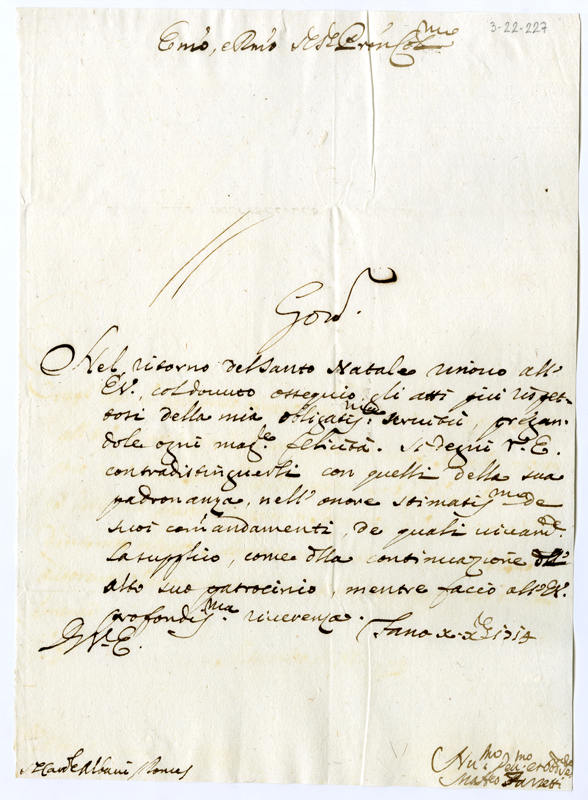 3-22-227
Emo, e Rmo Sr Sr Pron Colmo
Nel ritorno del Santo Natale rinovo all'
E.V., col dovuto ossequio gli atti più rispet-
tosi della mia obligatissma servitù, pregan-
dole ogni magre felicità. Si degni V.E.
contradistinguerli con quelli della sua
padronanza, nell'onore stimatissmo de
suoi comandamenti, de quali vivamte
la supplico, come della continuazione dell'
alto suo patrocinio, mentre faccio all'E.V.
profondissma riverenza.
Fano X Xbre 1714
D V.E.
Sr Cardle Albani Roma
Humo Devmo et Obbo Sre
Matteo